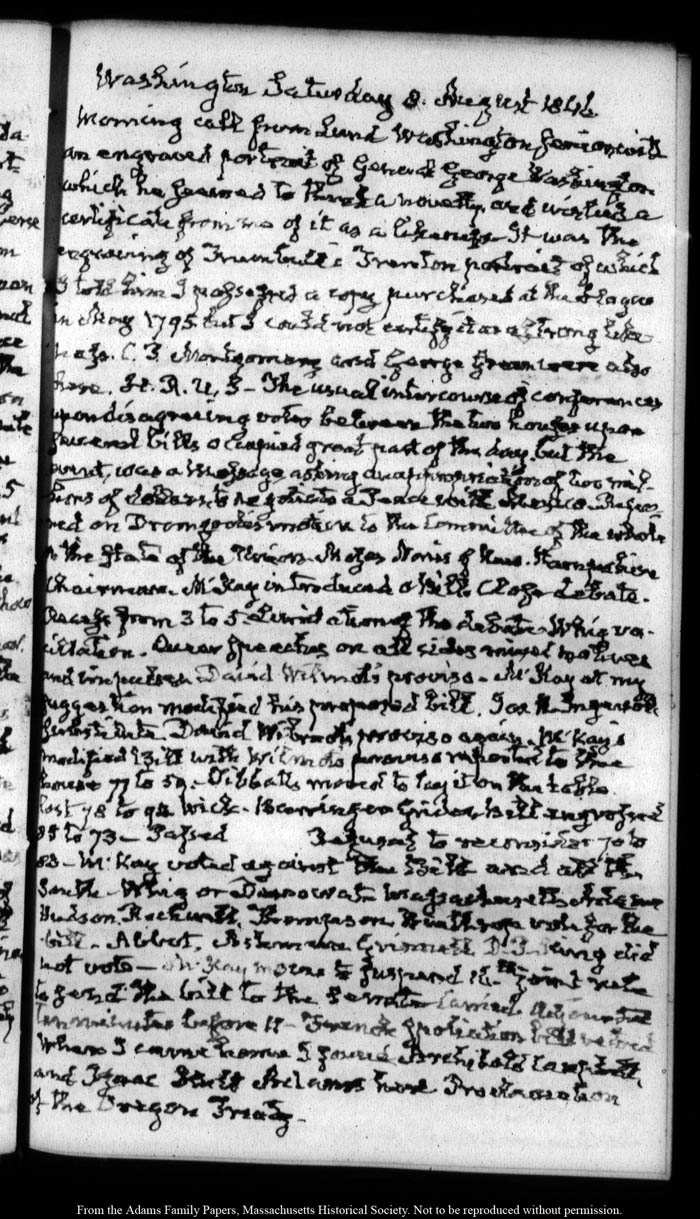 Washington Saturday 8. August 1846
Morning call from Lund Washington Senior with
an engraved portrait of General George Washington
which he seemed to think a novelty, and wished a
certificate from me of it as a likeness. It was the
engraving of Trumbull's Trenton portrait of which
I told him I possessed a copy purchased at the Hague
in May 1795 but I could not certify it as a strong like
ness. C. J. Montgomery and George Green were also
here. H. R. U. S — The usual intercourse of conferences
upon disagreeing votes between the two houses upon
several bills occupied great part of the day, but the
event, was a Message asking an appropriation of two mil-
lions of dollars, to negotiate a Peace with Mexico. Refer-
red on Dromgoole's motion to the Committee of the whole
on the state of the Union. Moses Norris of New Hampshire
Chairman. McKay introduced a Bill. Close debate.
Recess from 3 to 5. of the debate. Whig va-
cillation. Queer speeches on all sides mixed motives
and David Wilmot's proviso — McKay at my
suggestion modified his proposed bill. Jos. R. Ingersoll
substitute. David Wilmot's proviso again. McKay's
modified Bill with Wilmot's proviso reported to the
house 77 to 59. Tibbatts moved to lay it on the table
lost 78 to 94. Wick. Grider. Bill engrossed
85 to 73 — Passed Refusal to reconsider 70 to
83 — McKay voted against the Bill and all the
South — Whig or Democrat. Massachusetts
Hudson, Rockwell, Thompson, Winthrop vote for the
bill. Abbot, Ashmun, Grinnell D. P. King did
not vote — McKay moved to suspend 11th Joint rule
to send the bill to the Senate carried Adjourned
ten minutes before 11 — French spoliation bill vetoed
When I came home I found Archibald
and Isaac Hull Adams here Proclamation
of the Oregon Treaty.
From the Adams Family Papers, Massachusetts Historical Society. Not to be reproduced without permission.